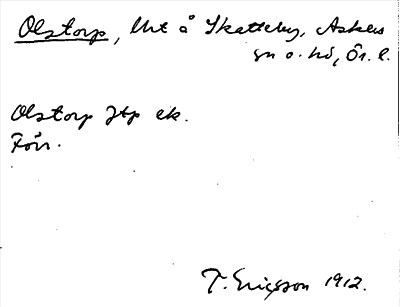 Olstorp, lht å Skatteby, Askers
sn o. hd, Ör. l.
Olstorp Jtp ek.
Förr.
T. Ericsson 1912.